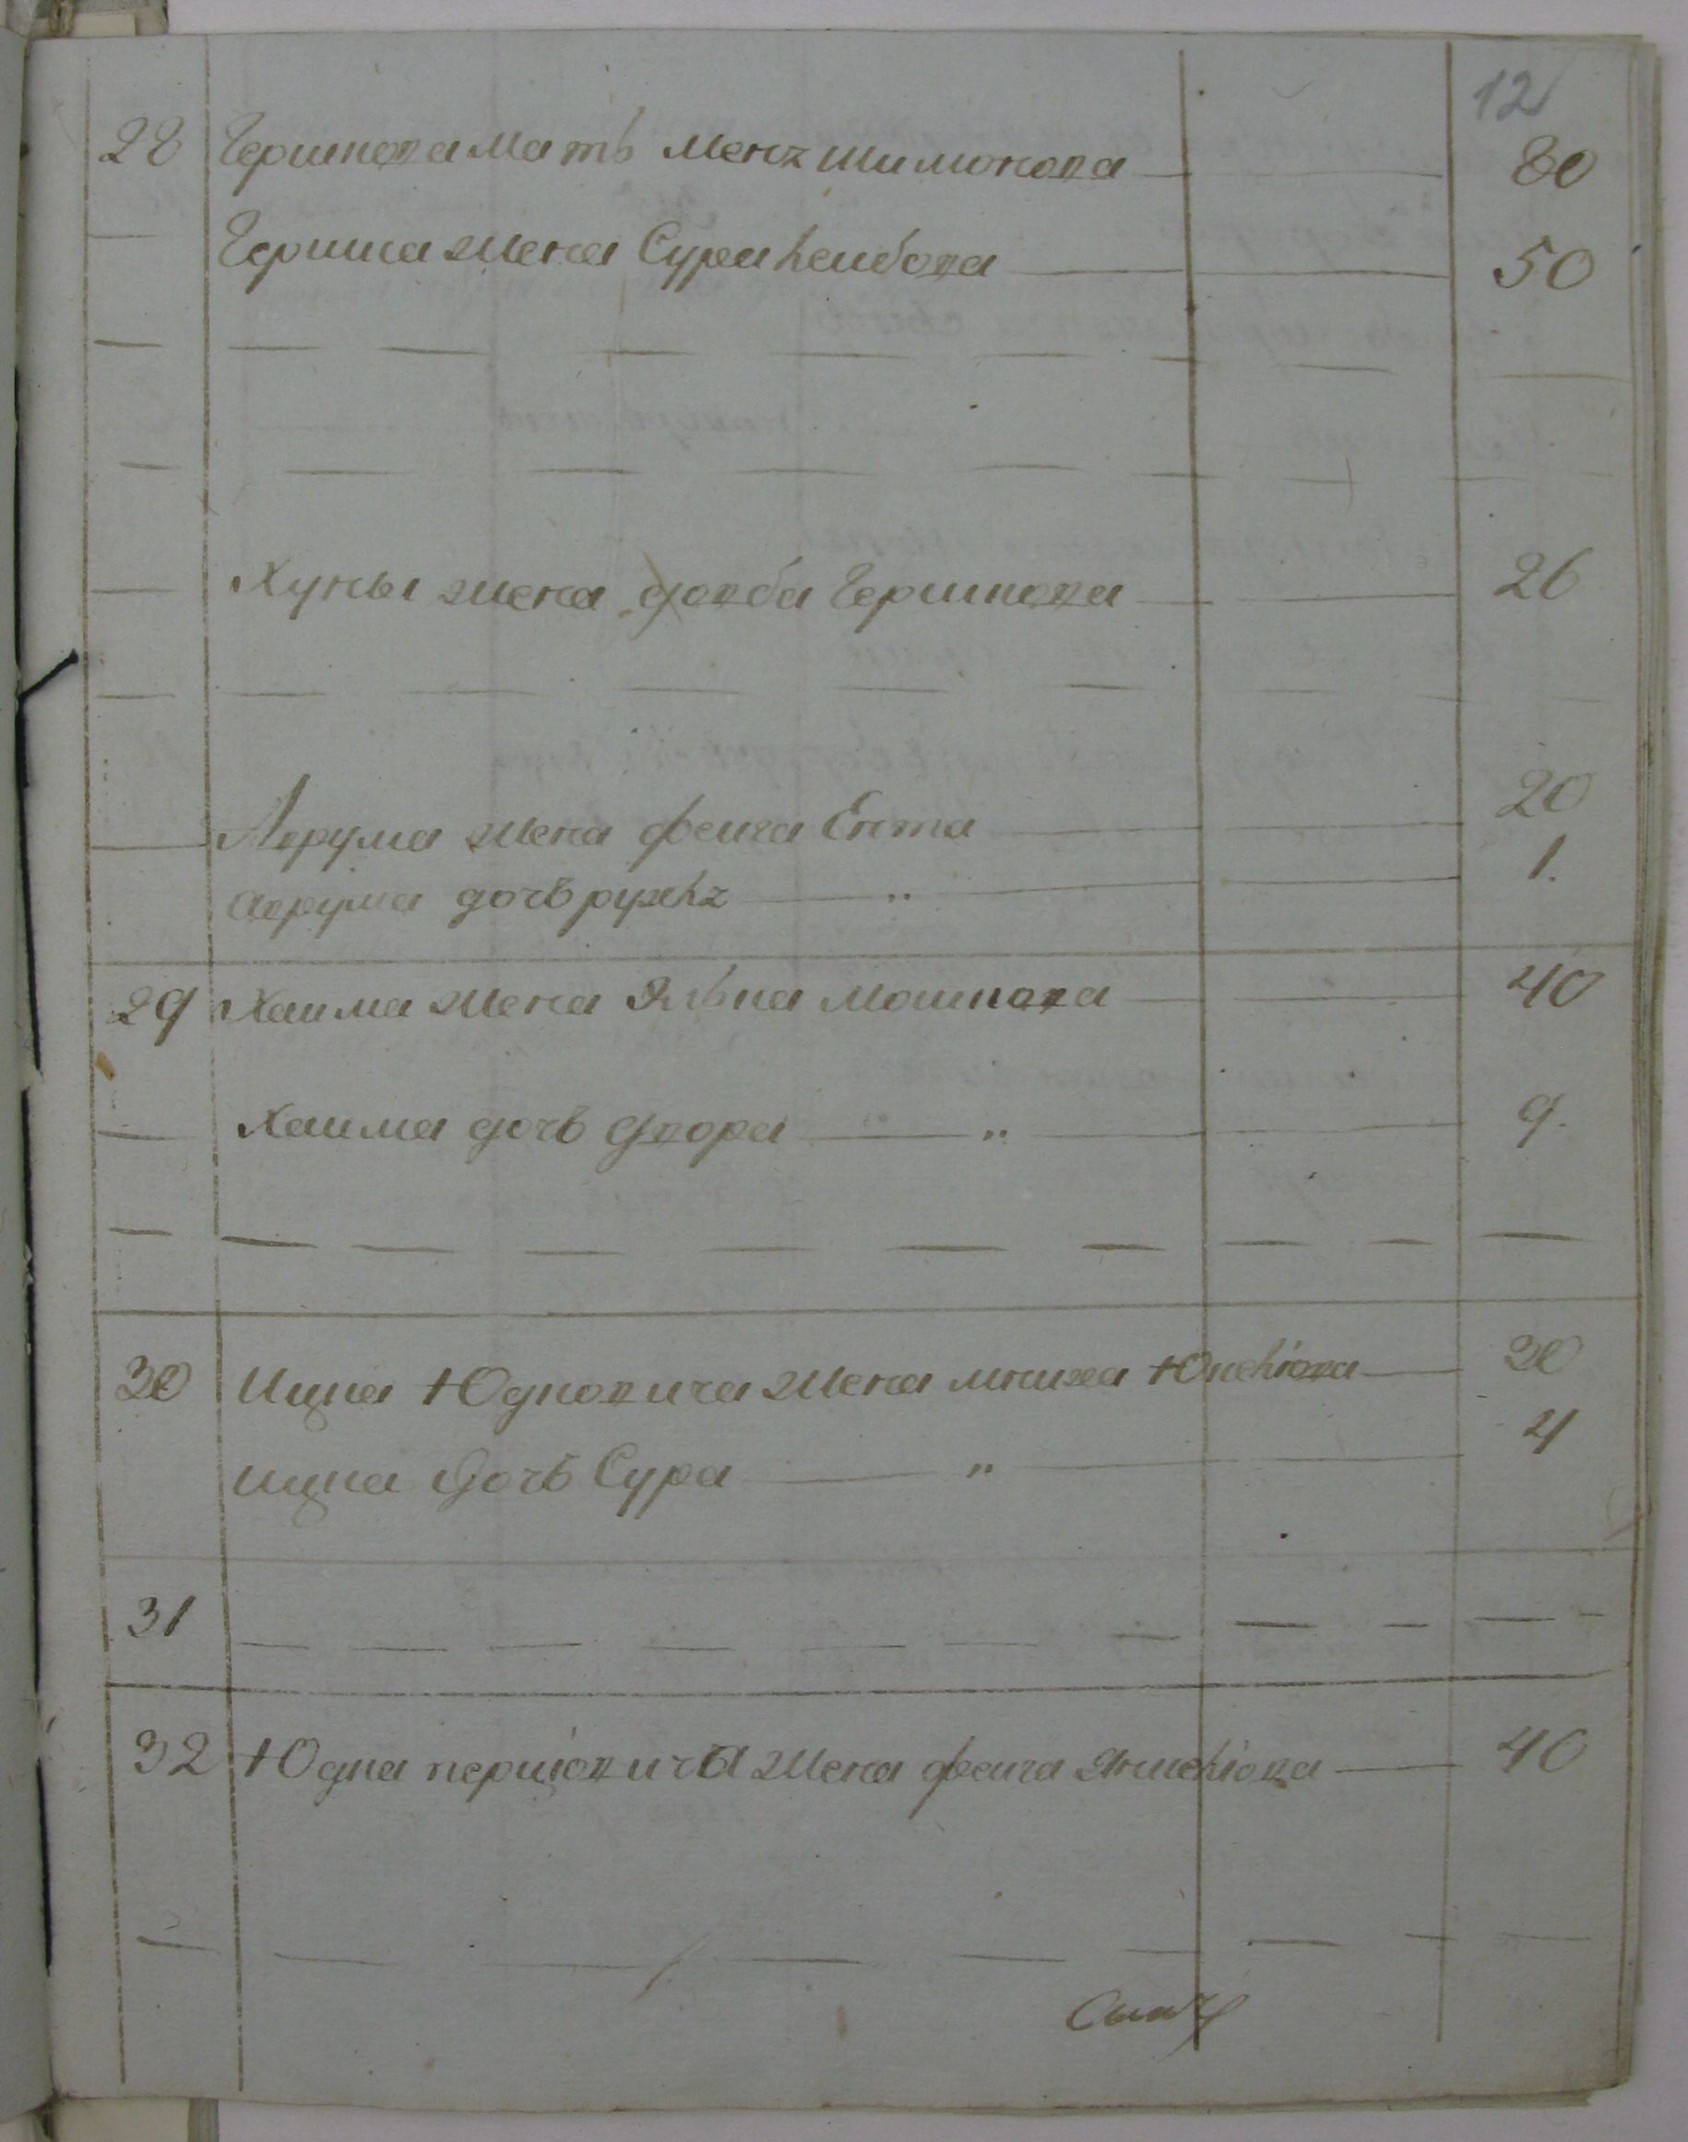 12
28 Гершкова мать Менъ Шимонова 80
Гершка жена Сура Лейбова 50
Хуны жена Довба Гершкова 26
Аврума жена Фейга Ента 20
Аврума дочь 1.
29 Хаима жена Ривка Мошкова 40
Хаима дочь Двора " 9.
30 Ицка Юдковича жена 30
Ицка дочь Сура " 4
31
32 Юдка жена Фейга 40